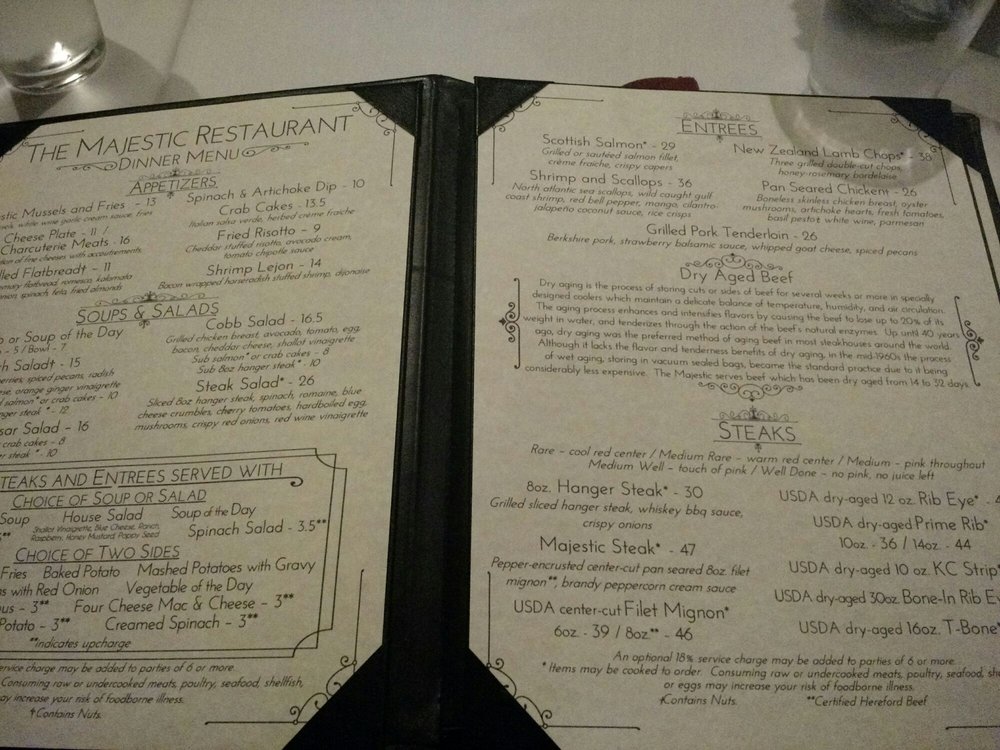 THE MAJESTIC RESTAURANT
DINNER MENU
APPETIZERS
Mussels and Fries - 13
white wine garlic cream sauce, fries
Cheese Plate - 11 /
Charcuterie Meats - 16
of fine cheeses with accoutrements
Flatbread† - 11
flatbread, romesco, kalamata
spinach, feta, fried almonds
Spinach & Artichoke Dip - 10
Crab Cakes - 13.5
Italian salsa verde, herbed crème fraiche
Fried Risotto - 9
Cheddar stuffed risotto, avocado cream,
tomato chipotle sauce
Shrimp Lejon - 14
Bacon wrapped horseradish stuffed shrimp, dijonaise
SOUPS & SALADS
or Soup of the Day
- 5 / Bowl - 7
Salad† - 15
spiced pecans, radish
orange ginger vinaigrette
salmon* or crab cakes - 10
steak* - 12
Salad - 16
crab cakes - 8
steak* - 10
Cobb Salad - 16.5
Grilled chicken breast, avocado, tomato, egg,
bacon, cheddar cheese, shallot vinaigrette
Sub salmon* or crab cakes - 8
Sub 8oz hanger steak* - 10
Steak Salad* - 26
Sliced 8oz hanger steak, spinach, romaine, blue
cheese crumbles, cherry tomatoes, hardboiled egg,
mushrooms, crispy red onions, red wine vinaigrette
STEAKS AND ENTREES SERVED WITH
CHOICE OF SOUP OR SALAD
Soup House Salad Soup of the Day
Shallot Vinaigrette, Blue Cheese, Ranch,
Raspberry, Honey Mustard, Poppy Seed
Spinach Salad - 3.5**
CHOICE OF TWO SIDES
Fries Baked Potato Mashed Potatoes with Gravy
with Red Onion Vegetable of the Day
- 3** Four Cheese Mac & Cheese - 3**
Potato - 3** Creamed Spinach - 3**
**indicates upcharge
service charge may be added to parties of 6 or more.
Consuming raw or undercooked meats, poultry, seafood, shellfish,
may increase your risk of foodborne illness.
†Contains Nuts.
ENTREES
Scottish Salmon* - 29
Grilled or sautéed salmon fillet,
crème fraiche, crispy capers
Shrimp and Scallops - 36
North atlantic sea scallops, wild caught gulf
coast shrimp, red bell pepper, mango, cilantro-
jalapeño coconut sauce, rice crisps
New Zealand Lamb Chops* - 38
Three grilled double-cut chops,
honey-rosemary bordelaise
Pan Seared Chicken† - 26
Boneless skinless chicken breast, oyster
mushrooms, artichoke hearts, fresh tomatoes,
basil pesto†, white wine, parmesan
Grilled Pork Tenderloin - 26
Berkshire pork, strawberry balsamic sauce, whipped goat cheese, spiced pecans
Dry Aged Beef
Dry aging is the process of storing cuts or sides of beef for several weeks or more in specially
designed coolers which maintain a delicate balance of temperature, humidity, and air circulation.
The aging process enhances and intensifies flavors by causing the beef to lose up to 20% of its
weight in water, and tenderizes through the action of the beef's natural enzymes. Up until 40 years
ago, dry aging was the preferred method of aging beef in most steakhouses around the world.
Although it lacks the flavor and tenderness benefits of dry aging, in the mid-1960s the process
of wet aging, storing in vacuum sealed bags, became the standard practice due to it being
considerably less expensive. The Majestic serves beef which has been dry aged from 14 to 32 days.
STEAKS
Rare - cool red center / Medium Rare - warm red center / Medium - pink throughout
Medium Well - touch of pink / Well Done - no pink, no juice left
8oz. Hanger Steak* - 30
Grilled sliced hanger steak, whiskey bbq sauce,
crispy onions
Majestic Steak* - 47
Pepper-encrusted center-cut pan seared 8oz. filet
mignon**, brandy peppercorn cream sauce
USDA center-cut Filet Mignon*
6oz. - 39 / 8oz** - 46
USDA dry-aged 12 oz. Rib Eye* -
USDA dry-aged Prime Rib*
10oz. - 36 / 14oz. - 44
USDA dry-aged 10 oz. KC Strip*
USDA dry-aged 30oz. Bone-In Rib
USDA dry-aged 16oz. T-Bone*
An optional 18% service charge may be added to parties of 6 or more.
* Items may be cooked to order. Consuming raw or undercooked meats, poultry, seafood,
or eggs may increase your risk of foodborne illness.
†Contains Nuts. **Certified Hereford Beef